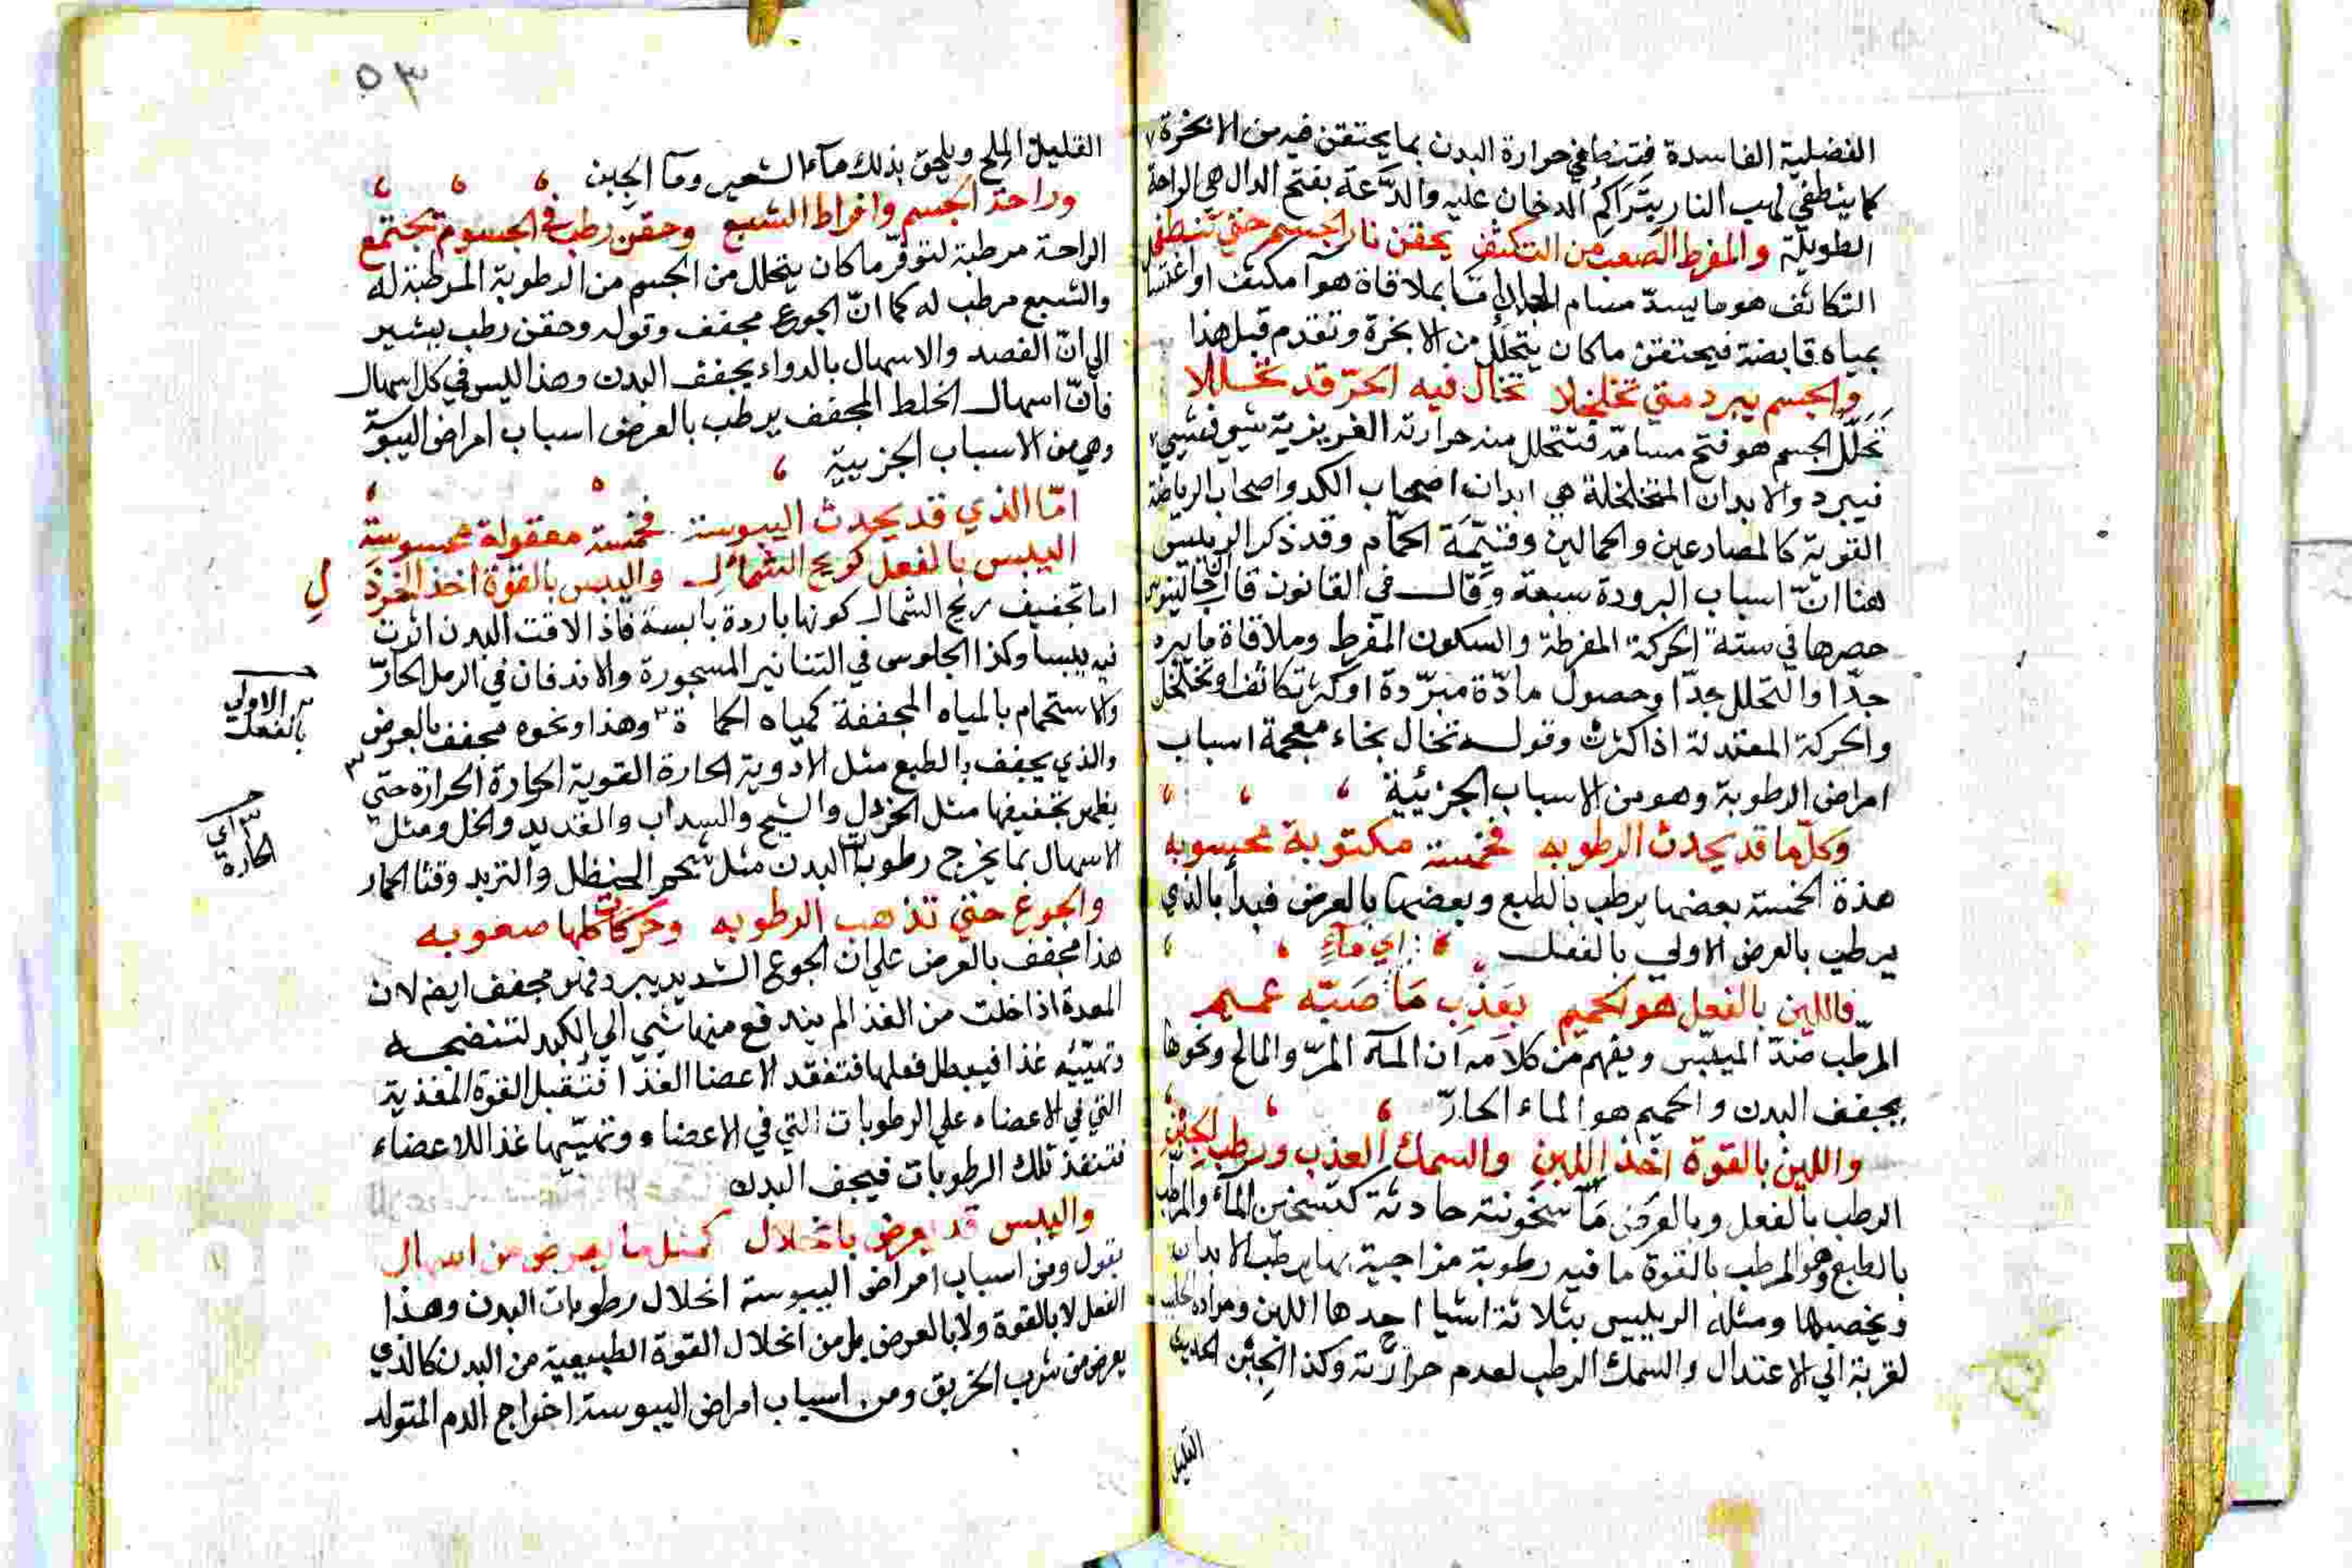 الفضلية الفاسدة فتنطفي حرارة البدن بما يحتقن فيه من الابخرة
كما ينطفي لهب النار بتراكم الدخان عليه والدَّعة بفتح الدال هي الراحة
الطويلة والمفرط الصعب من التكثف يحقن نار الجسم حتى تنطفي
التكاثف هو ما يسدّ مسام الجلد إمّا بملاقاة هوآ مكثف او اغتسا
بمياه قابضة فيحتقن ما كان يتحلل من الابخرة وتقدم قبل هذا
والجسم يبرد متي تخلخلا تخال فيه الحرّ قد تخللا
تخلل الجسم هو فتح مسامّه فتتحلل منه حرارته الغريزية شي فشي
فيبرد والابدان المتخلخلة هي ابدان اصحاب الكد واصحاب الرياضة
القوية كالمصارعين والحمالين وقيّمة الحمّام وقد ذكر الرييس
هنا انّ اسباب البرودة سبعة وقال في القانون قال جالينوس
حصرها في ستّة الحركة المفرطة والسكون المفرط وملاقاة ما يبرد
جدّا والتحلل جدّا وحصول مادّة مبرّدة او كثرة تكاثف او تخلخل
والحركة المعتدلة اذا كثرت وقوله تخال بخاء معجمة اسباب
امراض الرطوبة وهو من الاسباب الجزئية
وكلّما قد يحدث الرطوبه فخمسة مكتوبة محسوبه
هذة الخمسة بعضها يرطب بالطبع وبعضها بالعرض فبدأ بالذي
يرطب بالعرض الاولي بالفعل اي مآءٍ
فاللين بالفعل هو الحميم بعذب مَا صَبّه عميم
المرطّب ضدّ الميبّس ويفهم من كلامه ان المآء المرّ والمالح ونحوها
يجفف البدن والحميم هو الماء الحارّ
واللين بالقوة اخذ اللبن والسمك العذب ورطب الجبُن
الرطب بالفعل وبالعرض مَا سخونته حادثة كتسخين المآء والمرطب
بالطبع وهو المرطب بالقوة ما فيه رطوبة مزاجية بها يرطب الابدان
ويخصبها ومثله الرييس بثلاثة اشيا احدها اللبن ومراده الحليب
لقربة الي الاعتدال والسمك الرطب لعدم حرارته وكذا الجبُن الحديث
القليل
٥٣
القليل الملح ويلحق بذلك مآء الشعير ومآ الجبن
وراحة الجسم وافراط الشبع وحقن رطب في الجسوم تجتمع
الراحة مرطبة لتوفّر ما كان يتحلل من الجسم من الرطوبة المرطبة له
والشبع مرطب له كما انّ الجوع مجفف وقوله وحقن رطب يشير
الي انّ الفصد والاسهال بالدواء يجفف البدن وهذا ليس في كل اسهال
فانّ اسهال الخلط المجفف يرطب بالعرض اسباب امراض اليبوسة
وهي من الاسباب الجزيية
امّا الذي قد يحدث اليبوسة فخمسة معقولة محسوسة
اليبس بالفعل كريح الشمال واليبس بالقوة اخذ الخردل
اما تجفيف ريح الشمال كونها باردة يابسة فاذا لاقت البدن اثرت
فيه يبسا وكذا الجلوس في التنانير المسجورة والاندفان في الرمل الحارّ
والاستحمام بالمياه المجففة كمياه الحماة وهذا ونحوه مجفف بالعرض
والذي يجفف بالطبع مثل الأدوية الحارة القوية الحرارة حتي
يظهر تجفيفها مثل الخردل والشيح والسداب والقديد والخل ومثل
الاسهال بما يخرج رطوبات البدن مثل شحم الحنظل والتربد وقثا الحمار
والجوع حتي تذهب الرطوبه وحركات كلها صعوبه
هذا مجفف بالعرض علي ان الجوع الشديد يبرد فهو مجفف ايضا لان
المعدة اذا خلت من الغذا لم يندفع منها شي الي الكبد لتنضجه
وتهيّئه غذا فيبطل فعلها فتفقد الاعضا الغذا فتقبل القوة المغذية
التي في الاعضاء علي الرطوبات التي في الاعضاء وتهيّيها غذا للاعضاء
فتنفذ تلك الرطوبات فيجف البدن
واليبس قد يعرض بانحلال كمثل ما يعرض من اسهال
يقول ومن اسباب امراض اليبوسة انحلال رطوبات البدن وهذا
الفعل لا بالقوة ولا بالعرض بل من انحلال القوة الطبيعية من البدن كالذي
يعرض من شرب الخربق ومن اسباب امراض اليبوسة اخراج الدم المتولد
الاولي
بالفعل
اي
الحارة